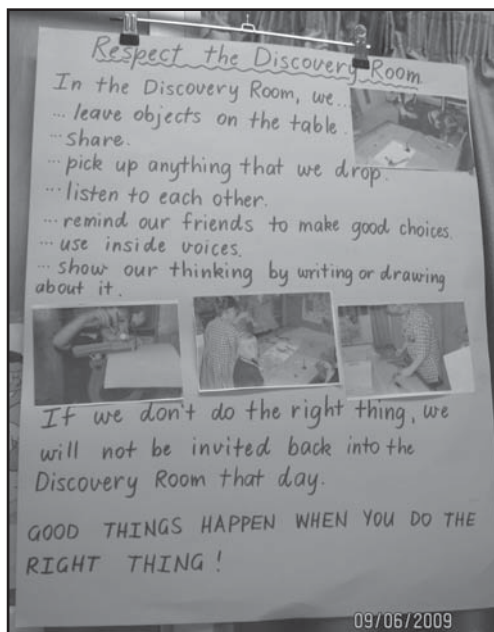 Respect the Discovery Room
In the Discovery Room, we...
... leave objects on the table.
... share.
... pick up anything that we drop.
... listen to each other.
... remind our friends to make good choices.
... use inside voices.
... show our thinking by writing or drawing
about it.
If we don't do the right thing, we
will not be invited back into the
Discovery Room that day.
GOOD THINGS HAPPEN WHEN YOU DO THE
RIGHT THING!
09/06/2009